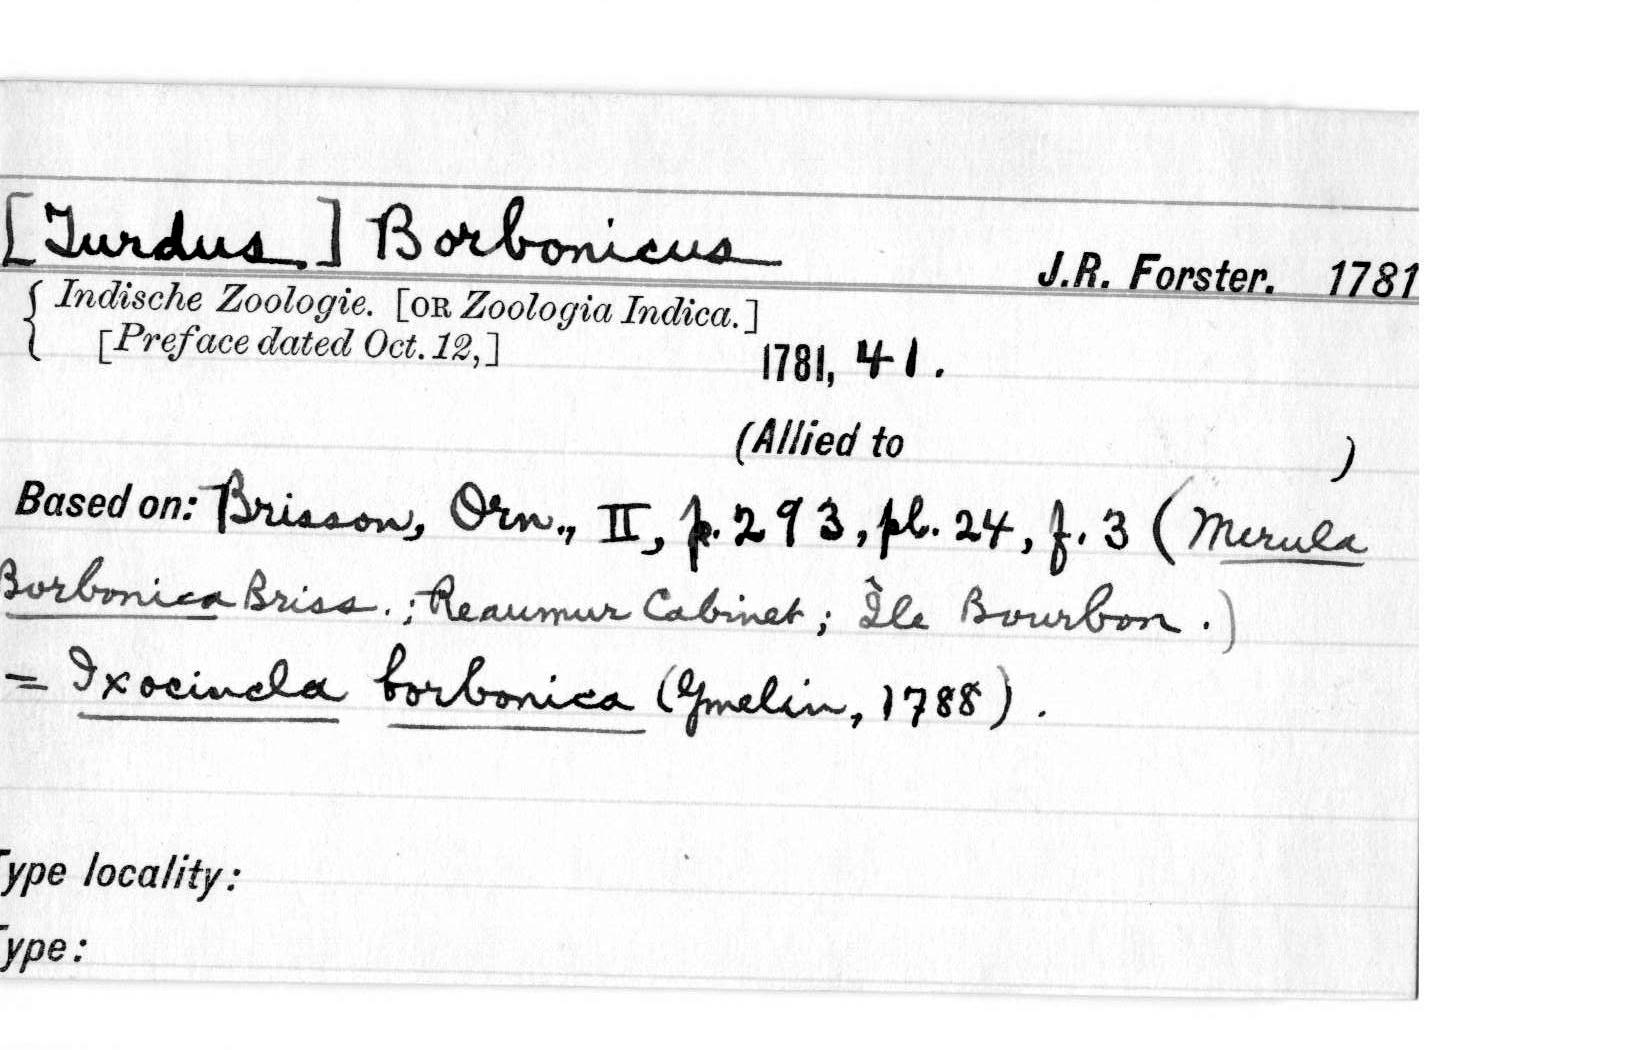 [Turdus] Borbonicus
J.R. Forster. 1781
{ Indische Zoologie. [OR Zoologia Indica.]
[Preface dated Oct. 12,]
1781, 41.
(Allied to )
Based on: Brisson, Orn., II, p. 293, pl. 24, f. 3 (Merula
Borbonica Briss.; Reaumur Cabinet; Île Bourbon.)
= Ixocincla borbonica (Gmelin, 1788).
Type locality:
Type: